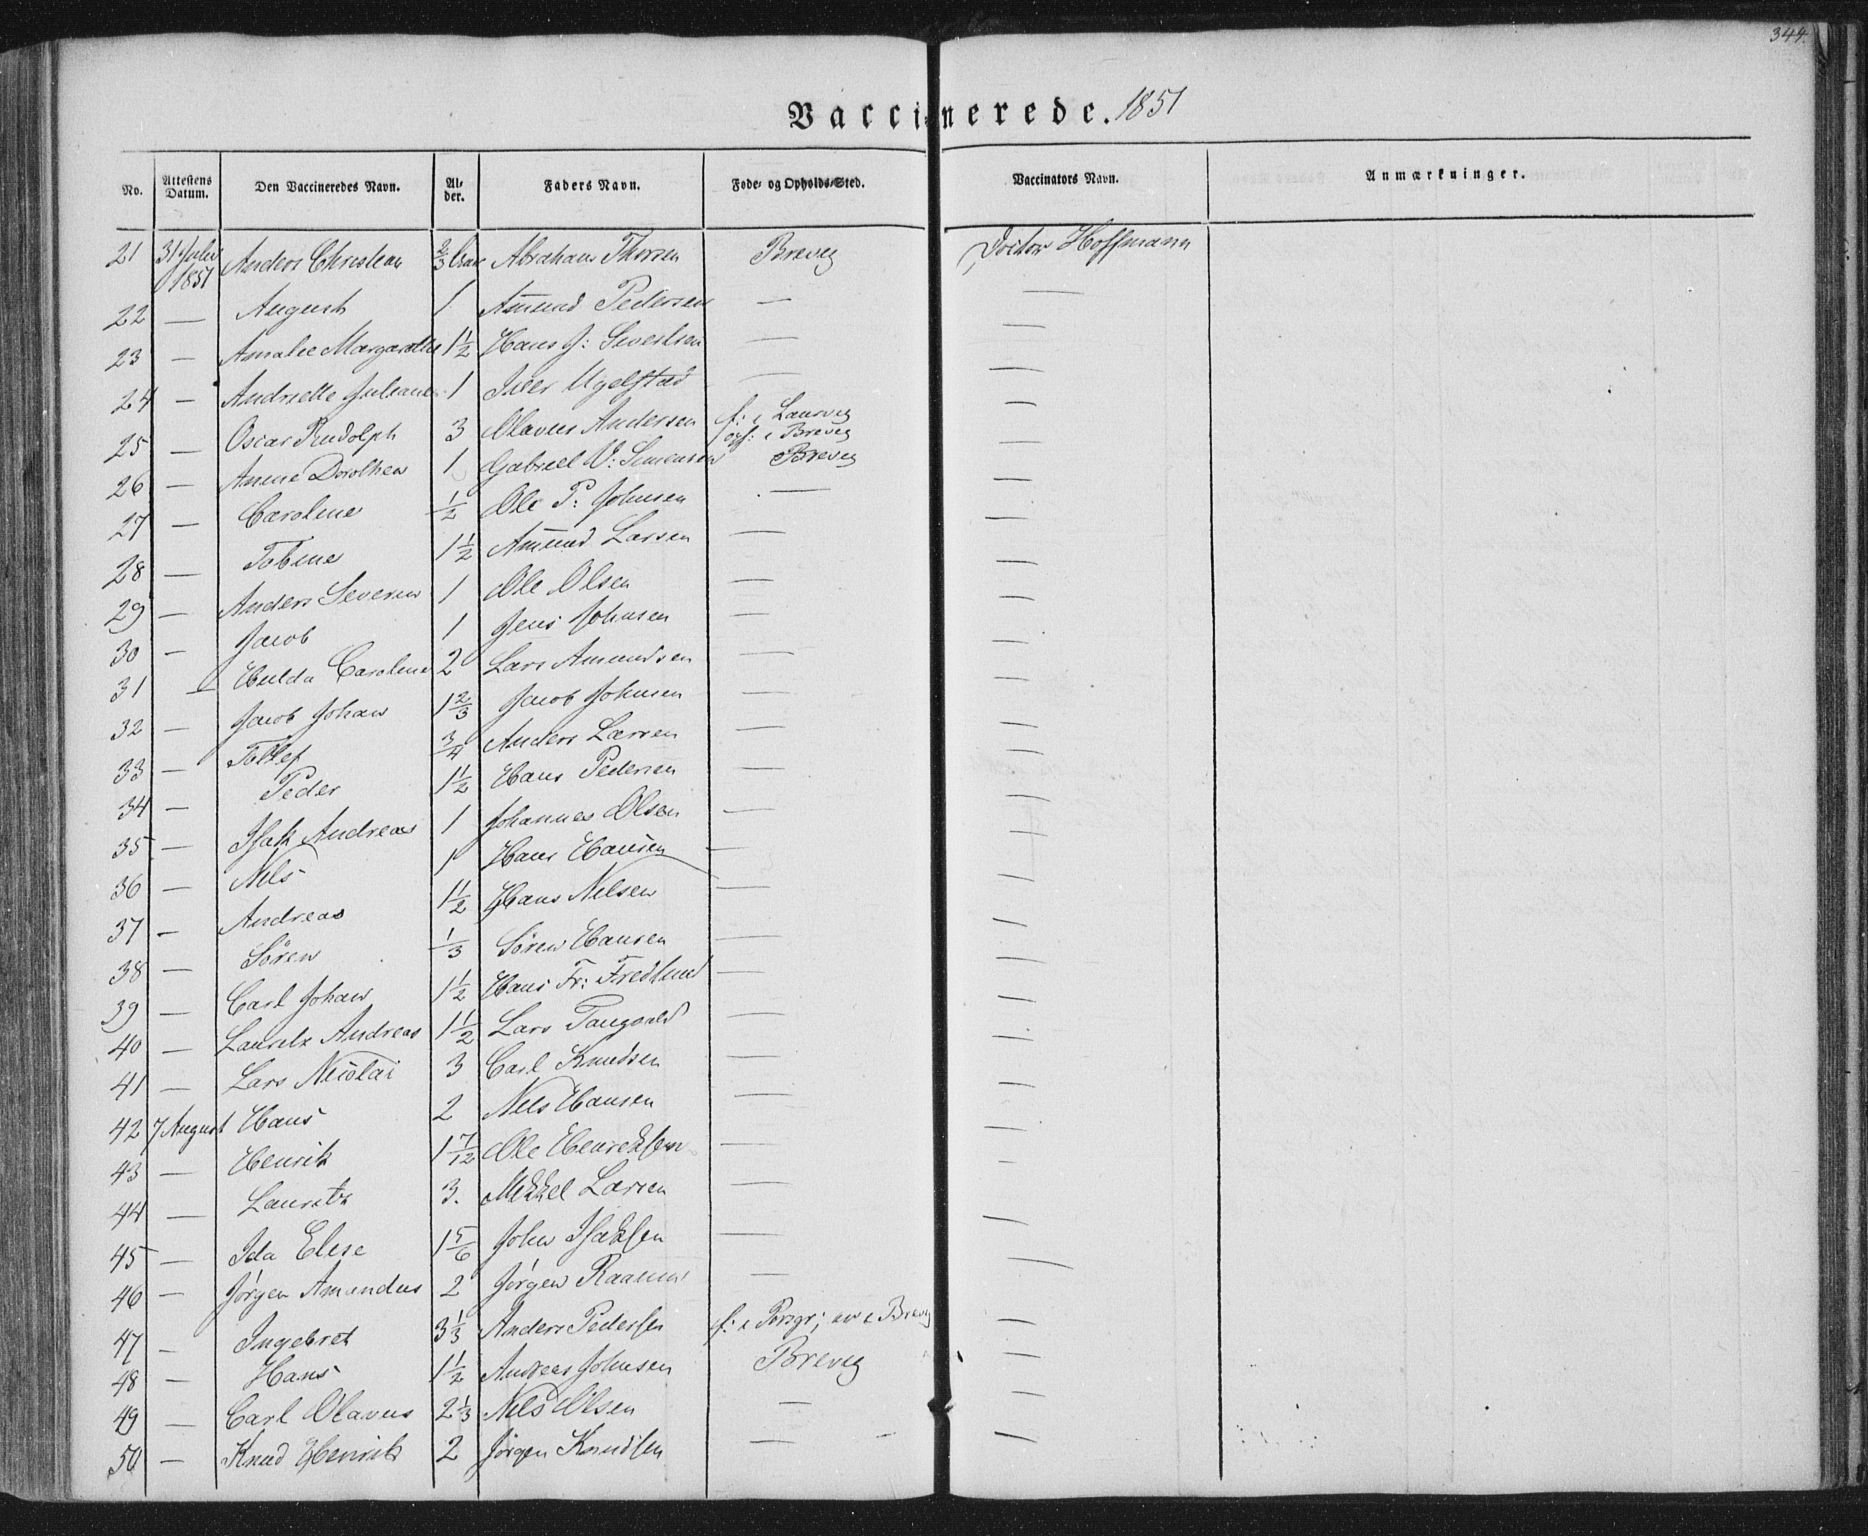 344.
Vaccinerede. 1851
No. Attestens Datum. Den Vaccineredes Navn. Alder. Faders Navn. Føde- og Opholds-Sted. Vaccinators Navn. Anmærkninger.
21 31 Julii 1851 Anders Christian 2/3 Abraham Thorsen Brevig Doctor Hoffmann
22 — August 1 Amund Pedersen — —
23 — Amalie Margarethe 1 1/2 Hans J: Sivertsen — —
24 — Andrielle Juliane 1 Iver Ugelstad — —
25 — Oscar Rudolph 3 Olavus Andersen f: i Laurvig oph: i Brevig —
26 — Anne Dorothea 1 Gabriel V: Simensen Brevig —
27 — Caroline 1/2 Ole P: Johnsen — —
28 — Tobine 1 1/2 Amund Larsen — —
29 — Anders Severin 1 Ole Olsen — —
30 — Jacob 1 Jens Johnsen — —
31 — Hulda Caroline 2 Lars Amundsen — —
32 — Jacob Johan 1 2/3 Jacob Johnsen — —
33 — Tollef 3/4 Anders Larsen — —
34 — Peder 1 1/2 Hans Pedersen — —
35 — Isak Andreas 1 Johannes Olsen — —
36 — Nils 1 Hans Hansen — —
37 — Andreas 1 1/2 Hans Nilsen — —
38 — Søren 1/3 Søren Hansen — —
39 — Carl Johan 1 1/2 Hans Fr: Fredlund — —
40 — Lauritz Andreas 1 1/2 Lars Tangvald — —
41 — Lars Nicolai 3 Carl Knudsen — —
42 7 August Hans 2 Nils Hansen — —
43 — Henrik 1 7/12 Ole Henriksen — —
44 — Lauritz 3. Mikkel Larsen — —
45 — Ida Elise 1 5/6 John Isaksen — —
46 — Jørgen Amandus 2 Jørgen — —
47 — Ingebret 3 1/3 Anders Pedersen f: i Porsgr; i Brevig —
48 — Hans 1 1/2 Andreas Johnsen Brevig —
49 — Carl Olavus 2 1/3 Nils Olsen — —
50 — Knud Henrik 2 Jørgen Knudsen — —